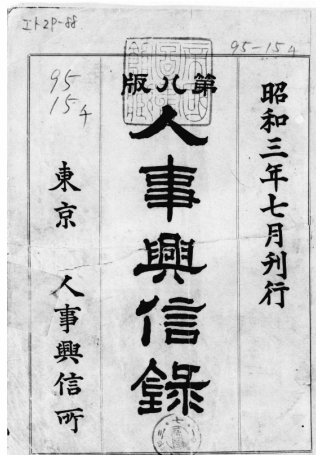 エト2P-88
95-154
95
154
昭和三年七月刊行
第八版
人事興信録
東京 人事興信所